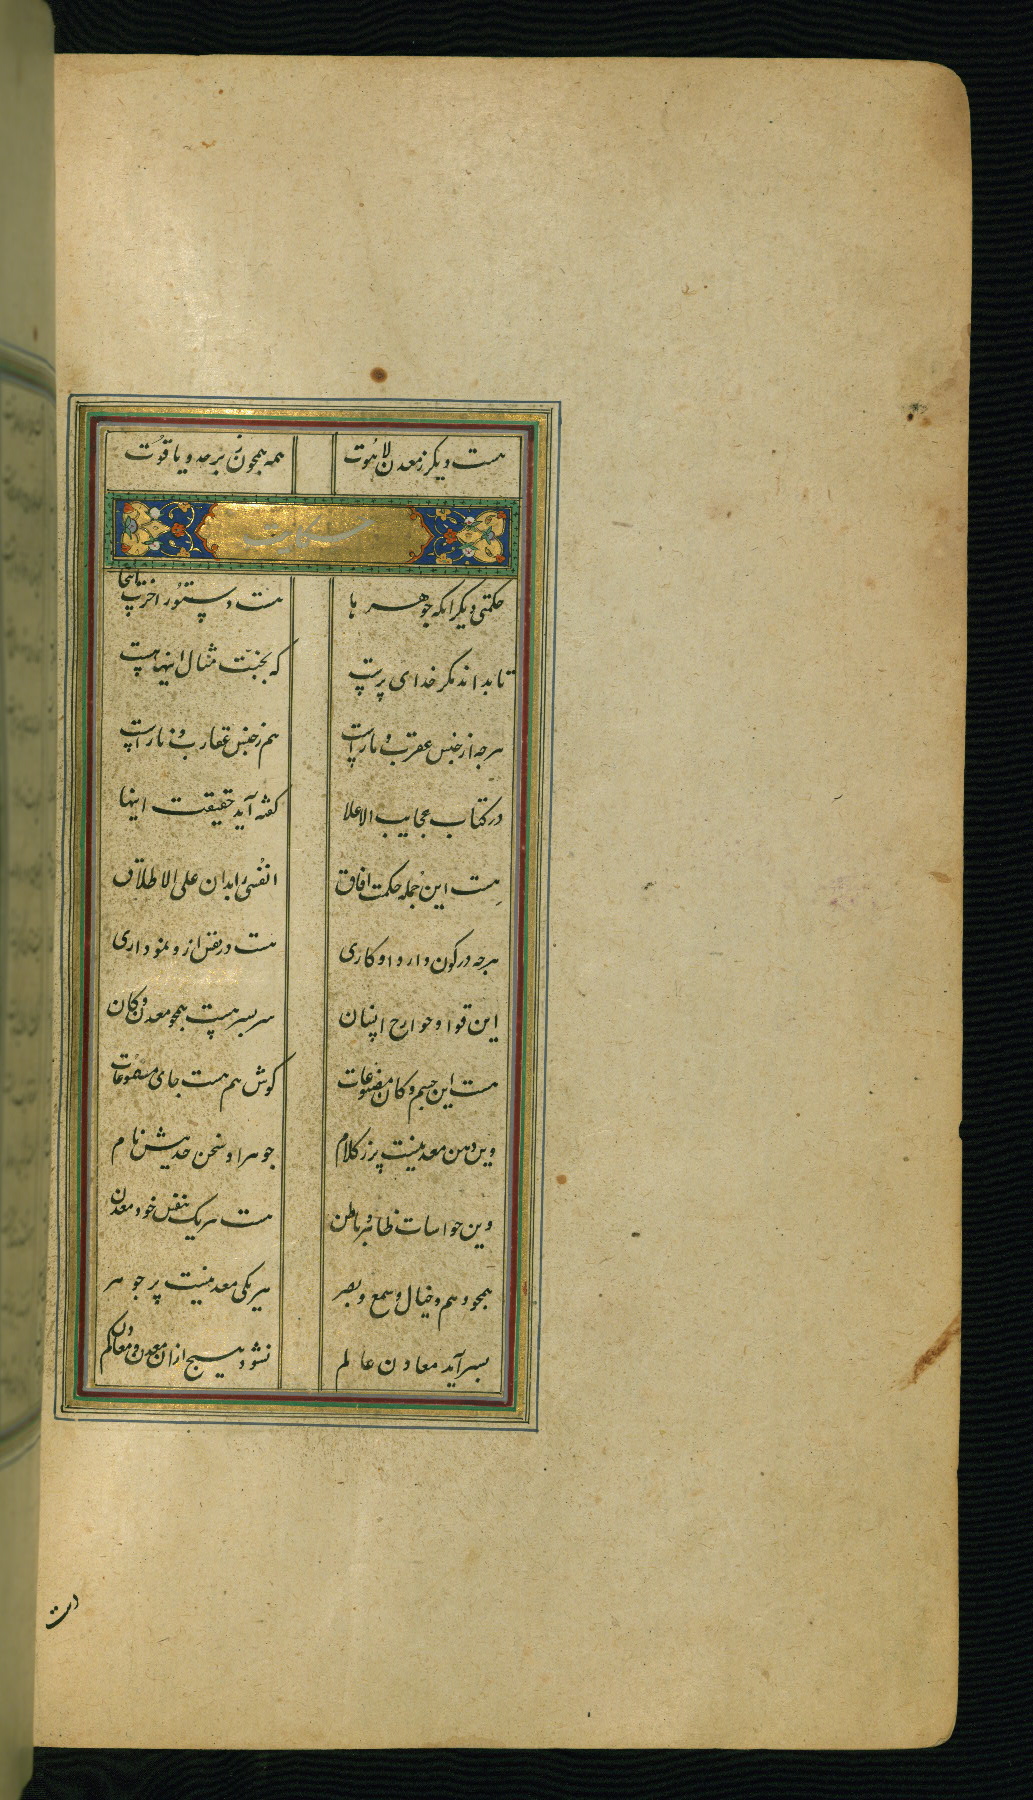 هست دیکر ز معدن لاهوت همه همچون زبرجد و یاقوت
حکایت
حکمتی دیکر آنکه جوهرها هست دستور آخرت
تا بداند مکر خدای پرست که بجنت مثال اینها هست
هرجه از جنس عقرب و مار است هم ز جنس عقارب و نار است
در کتاب عجایب الاعلا کفته آید حقیقت اینها
هست این جمله حکمت افاق انفسی را بدان علی الاطلاق
هرجه در کون دارد او کاری هست در نفس ازو نموداری
این قوا و جوارح انسان سر بسر هست همجو معدن و کان
هست این جسم و کان مصنوعات کوش هم هست جای مسموعات
وین دهن معدنیست پر ز کلام جوهر او سخن حدیثش نام
وین حواسات ظاهر و باطن هست هر یک بنفس خود معدن
همجو وهم و خیال و سمع و بصر هر یکی معدنیست پر جوهر
بسر آید معادن عالم نشود هیج ازان معدن و معادن کم